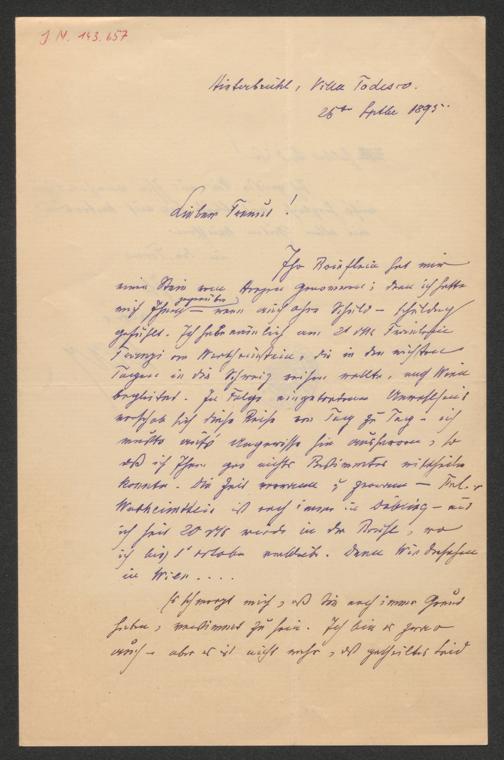 J. N. 143.657
Hinterbrühl, Villa Todesco.
26ten Septbr 1895.
Lieber Freund!
Ihr Brieflein hat mir
einen Stein vom Herzen genommen; denn ich hatte
mich Ihnen gegenüber – wenn auch ohne Schuld – schuldig
gefühlt. Ich habe nämlich am 21 ds. Fräulein
Franzi von Wertheimstein, die in den nächsten
Tagen in die Schweiz reisen wollte, nach Wien
begleitet. In Folge eingetretenen Unwohlseins
verschob sich diese Reise von Tag zu Tag – ich
mußte aufs Ungewisse hin ausharren, so
daß ich Ihnen gar nichts Bestimmtes mittheilen
konnte. Die Zeit verrann
Wertheimstein ist noch immer in Döbling – und
ich seit 20 ds. wieder in der Brühl, wo
ich bis 1t October verbleibe. Dann Wiedersehen
in Wien....
Es schmerzt mich, daß Sie noch immer Grund
haben, verstimmt zu sein. Ich bin es zwar
auch – aber es ist nicht wahr, daß getheiltes Leid